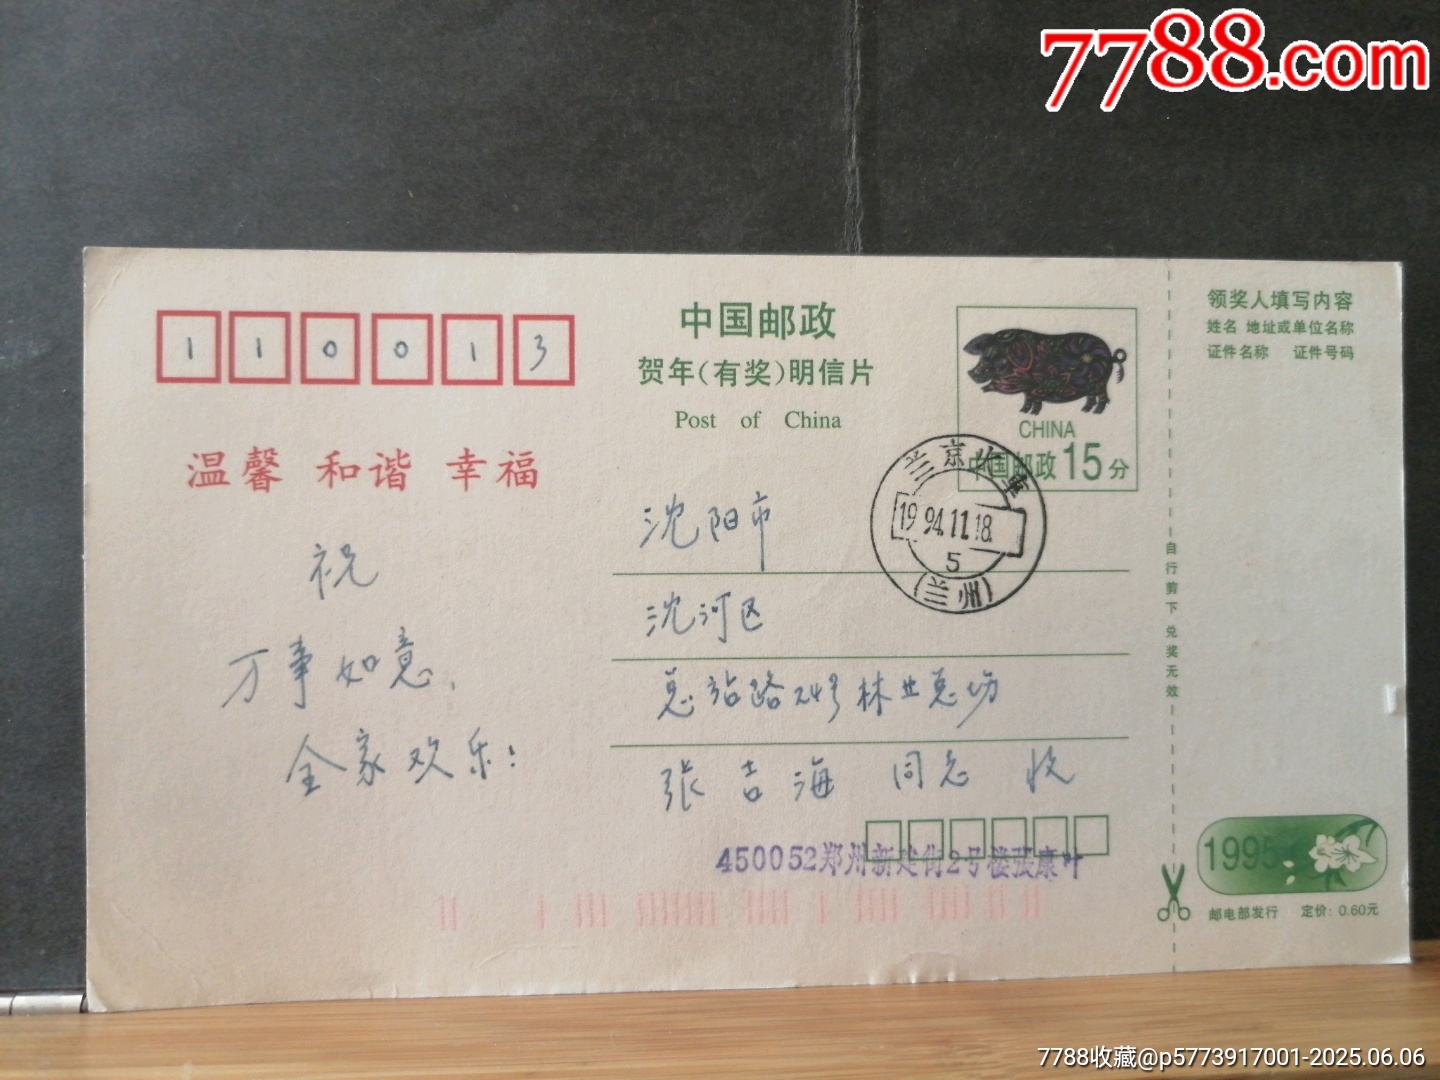 7788.com
110013
中国邮政
贺年(有奖)明信片
Post of China
CHINA
中国邮政 15分
领奖人填写内容
姓名 地址或单位名称
证件名称 证件号码
温馨 和谐 幸福
祝
万事如意,
全家欢乐!
沈阳市
沈河区
总站路24号林业总场
张吉海 同志 收
兰京
1994.11.18.
5
(兰州)
自行剪下兑奖无效
450052郑州新建街2号楼张康叶
1995
邮电部发行 定价: 0.60元
7788收藏@p5773917001-2025.06.06